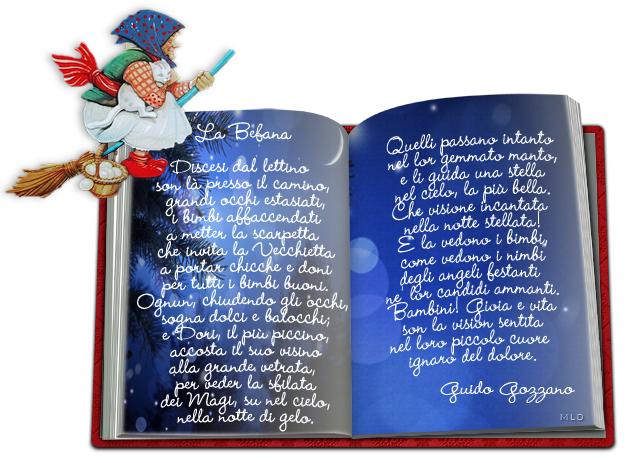 La Befana
Discesi dal lettino
son là presso il camino,
grandi occhi estasiati,
i bimbi affaccendati
a metter la scarpetta
che invita la Vecchietta
a portar chicche e doni
per tutti i bimbi buoni.
Ognun, chiudendo gli occhi,
sogna dolci e balocchi;
e Dori, il più piccino,
accosta il suo visino
alla grande vetrata,
per veder la sfilata
dei Màgi, su nel cielo,
nella notte di gelo.
Quelli passano intanto
nel lor gemmato manto,
e li guida una stella
nel cielo, la più bella.
Che visione incantata
nella notte stellata!
E la vedono i bimbi,
come vedono i nimbi
degli angeli festanti
ne' lor candidi ammanti.
Bambini! Gioia e vita
son la vision sentita
nel loro piccolo cuore
ignaro del dolore.
Guido Gozzano
MLD